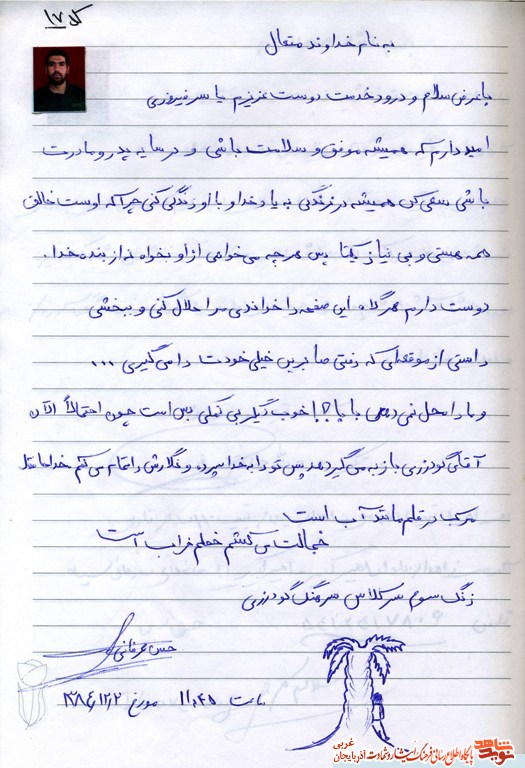 کد ۱۷
به نام خداوند متعال
با عرض سلام و درود خدمت دوست عزیزم یاسر فیروزی
امیدوارم که همیشه موفق و سلامت باشی و در سایه پدر و مادرت
باشی سعی کن همیشه در زندگی به یاد خدا و با او زندگی کنی چرا که اوست خالق
همه هستی و بی نیاز یکتا پس هر چه می‌خواهی از او بخواه نه از بنده خدا.
دوست دارم هر گاه این صفحه را خواندی مرا حلال کنی و ببخشی
راستی از موقعه‌ای که رفتی صابرین خیلی خودت را می‌گیری ...
و ما را محل نمی‌دهی بابا خوب دیگر بی کمکی بس است چون احتمالاً الآن
آقای گودرزی باز به می‌گیرد پس تو را به خدا سپرده و نگارش را تمام می‌کنم خداحافظ
مرکب در قلم مانند آب است
خجالت می‌کشم خطم خراب است
زنگ سوم سر کلاس سرهنگ گودرزی
حسن عرفانی
ساعت ۱۱:۴۵ مورخ ۱۳۸۶/۱۲/۲
نوید شاهد
پایگاه اطلاع رسانی فرهنگ ایثار و شهادت آذربایجان غربی